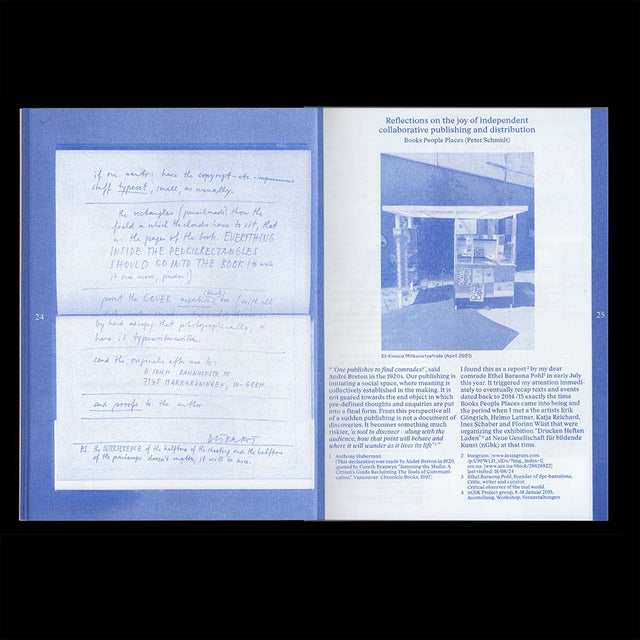 if one wants: have the copyright-etc.-impressum
stuff typeset, small, as usually.
the rectangles (pencilmade) show the
field in which the clouds have to sit, that
is: the pages of the book. EVERYTHING
INSIDE THE PENCILRECTANGLES
SHOULD GO INTO THE BOOK (to walk
it one more, pardon)
print the COVER negative, too (with all
(black)
by hand
photographically, or
have it typewritten
send the originals after use to:
H. JOHN. BAHNHOFSTR. 38
7145 MARKGRÖNINGEN, W-GERM.
and proofs to the author
PS. the INTERFERENCE of the halftone of the
and the halftone
of the
doesn't matter, it will be nice.
24
Reflections on the joy of independent
collaborative publishing and distribution
Books People Places (Peter Schmidt)
25
Et-Kioscu Mitkunstzetrale (April 2021)
"'One publishes to find comrades!', said
André Breton in the 1920s. Our publishing is
initiating a social space, where meaning is
collectively established in the making. It is
not geared towards the end object in which
pre-defined thoughts and enquiries are put
into a final form. From this perspective all
of a sudden publishing is not a document of
discoveries. It becomes something much
riskier, 'a tool to discover - along with the
audience, how that point will behave and
where it will wander as it lives its life'¹"
1 Anthony Huberman
(This declaration was made by André Breton in 1920,
quoted by Gareth Branwyn "Jamming the Media: A
Citizen's Guide Reclaiming The Tools of Communi-
cation". Vancouver: Chronicle Books, 1997)
I found this as a repost² by my dear
comrade Ethel Baraona Pohl³ in early July
this year. It triggered my attention immedi-
ately to eventually recap texts and events
dated back to 2014/15 exactly the time
Books People Places came into being and
the period when I met the artists Erik
Göngrich, Heimo Lattner, Katja Reichard,
Ines Schaber and Florian Wüst that were
organizing the exhibition "Drucken Heften
Laden"⁴ at Neue Gesellschaft für bildende
Kunst (nGbk) at that time.
2 Instgram: [www.instagram.com
last visited: 18/09/24
3 Ethel Baraona Pohl, founder of dpr-barcelona.
Critic, writer and curator.
Critical observer of the real world.
4 nGbK Project group, 8–18 Januar 2015,
Ausstellung, Workshop, Veranstaltungen